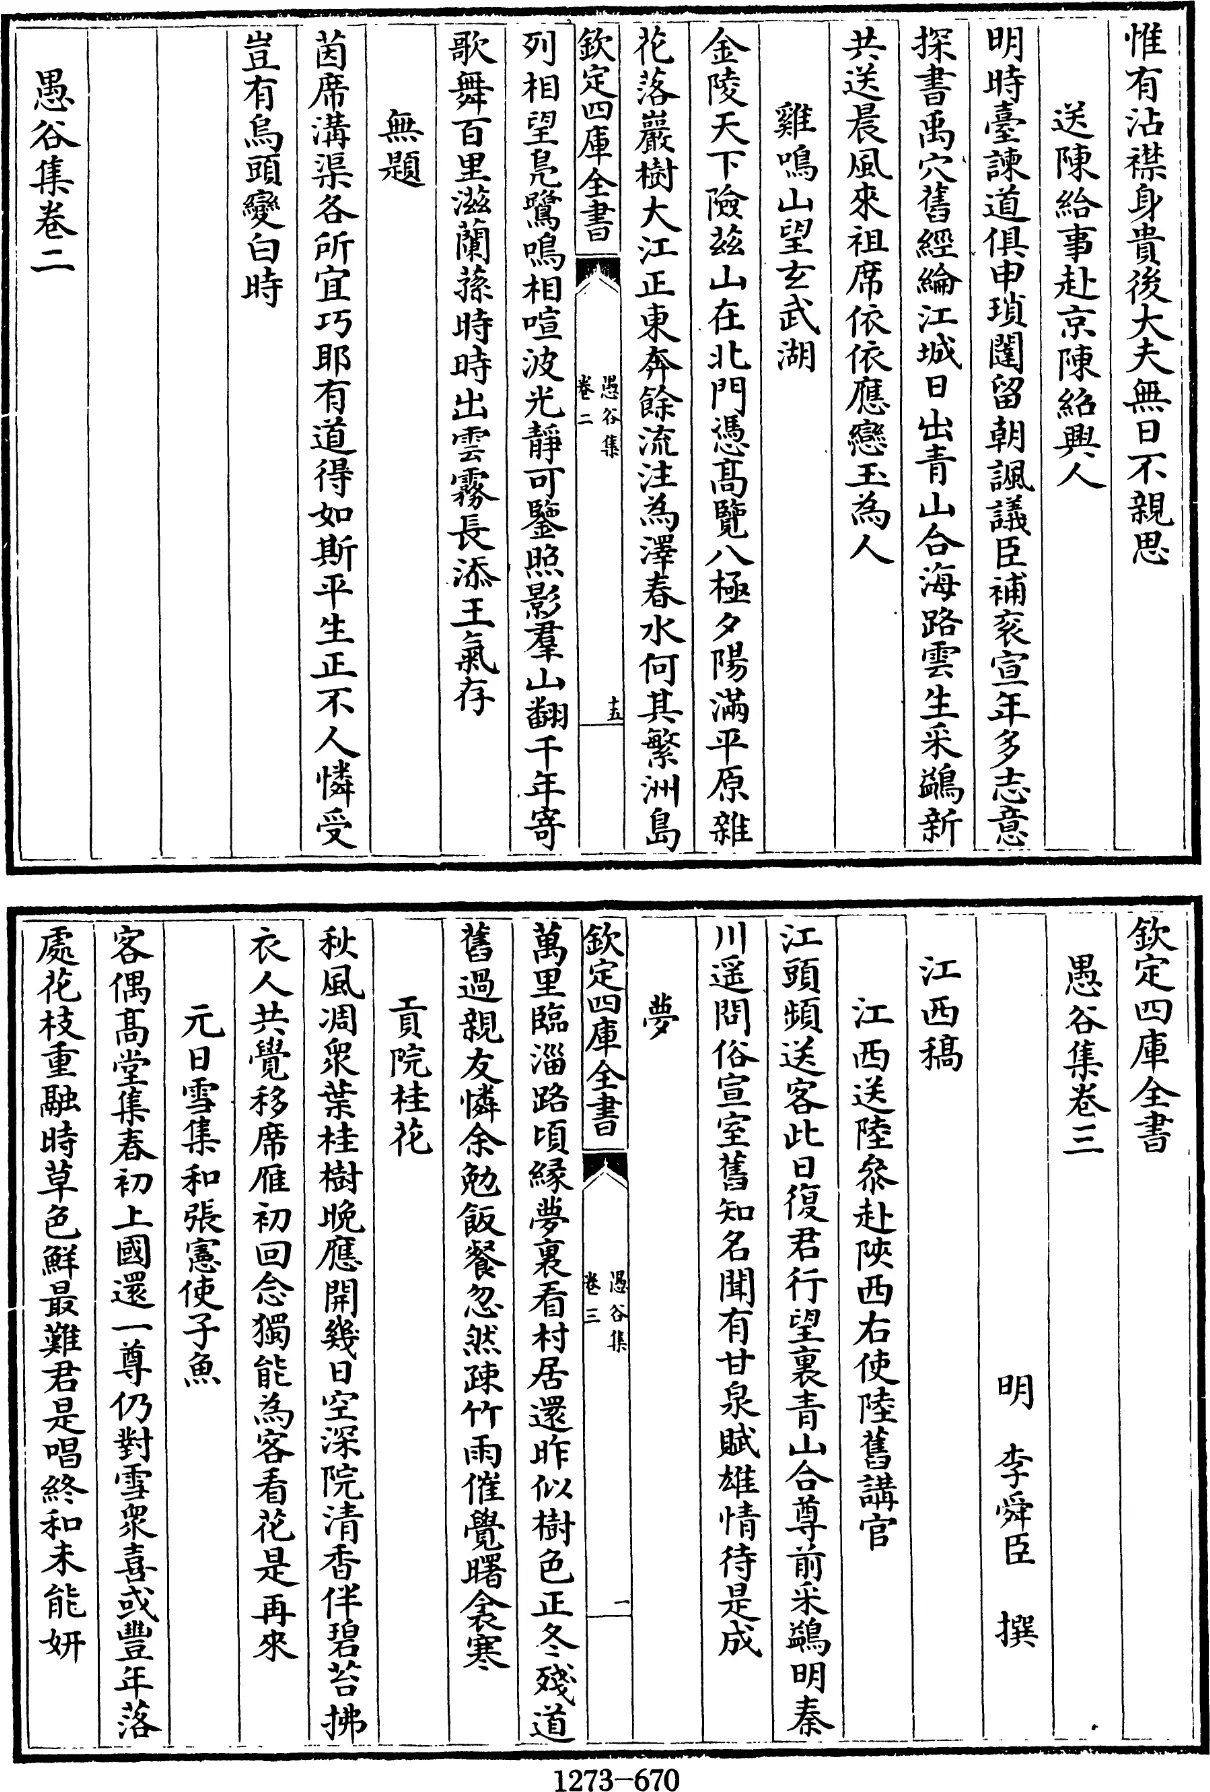 惟有沾襟身貴後大夫無日不親思
送陳給事赴京陳紹興人
明時臺諫道俱申瑣闥留朝諷議臣補衮宣年多志意
探書禹穴舊經綸江城日出青山合海路雲生采鷁新
共送晨風來祖席依依應戀玉為人
雞鳴山望玄武湖
金陵天下險茲山在北門憑髙覽八極夕陽滿平原雜
花落巖樹大江正東奔餘流注為澤春水何其繁洲島
欽定四庫全書
愚谷集
卷二
十五
列相望鳧鷺鳴相喧波光靜可鑒照影羣山翻千年寄
歌舞百里滋蘭蓀時時出雲霧長添王氣存
無題
茵席溝渠各所宜巧耶有道得如斯平生正不人憐受
豈有烏頭變白時
愚谷集卷二
欽定四庫全書
愚谷集卷三
明 李舜臣 撰
江西稿
江西送陸叅赴陝西右使陸舊講官
江頭頻送客此日復君行望裏青山合尊前采鷁明秦
川遥問俗宣室舊知名聞有甘泉賦雄情待是成
夢
欽定四庫全書
愚谷集
卷三
一
萬里臨淄路頃縁夢裏看村居還昨似樹色正冬殘道
舊過親友憐余勉飯餐忽然疎竹雨催覺曙衾寒
貢院桂花
秋風凋衆葉桂樹晚應開幾日空深院清香伴碧苔拂
衣人共覺移席雁初回念獨能為客看花是再來
元日雪集和張憲使子魚
客偶髙堂集春初上國還一尊仍對雪衆喜或豐年落
處花枝重融時草色鮮最難君是唱終和未能妍
1273-670